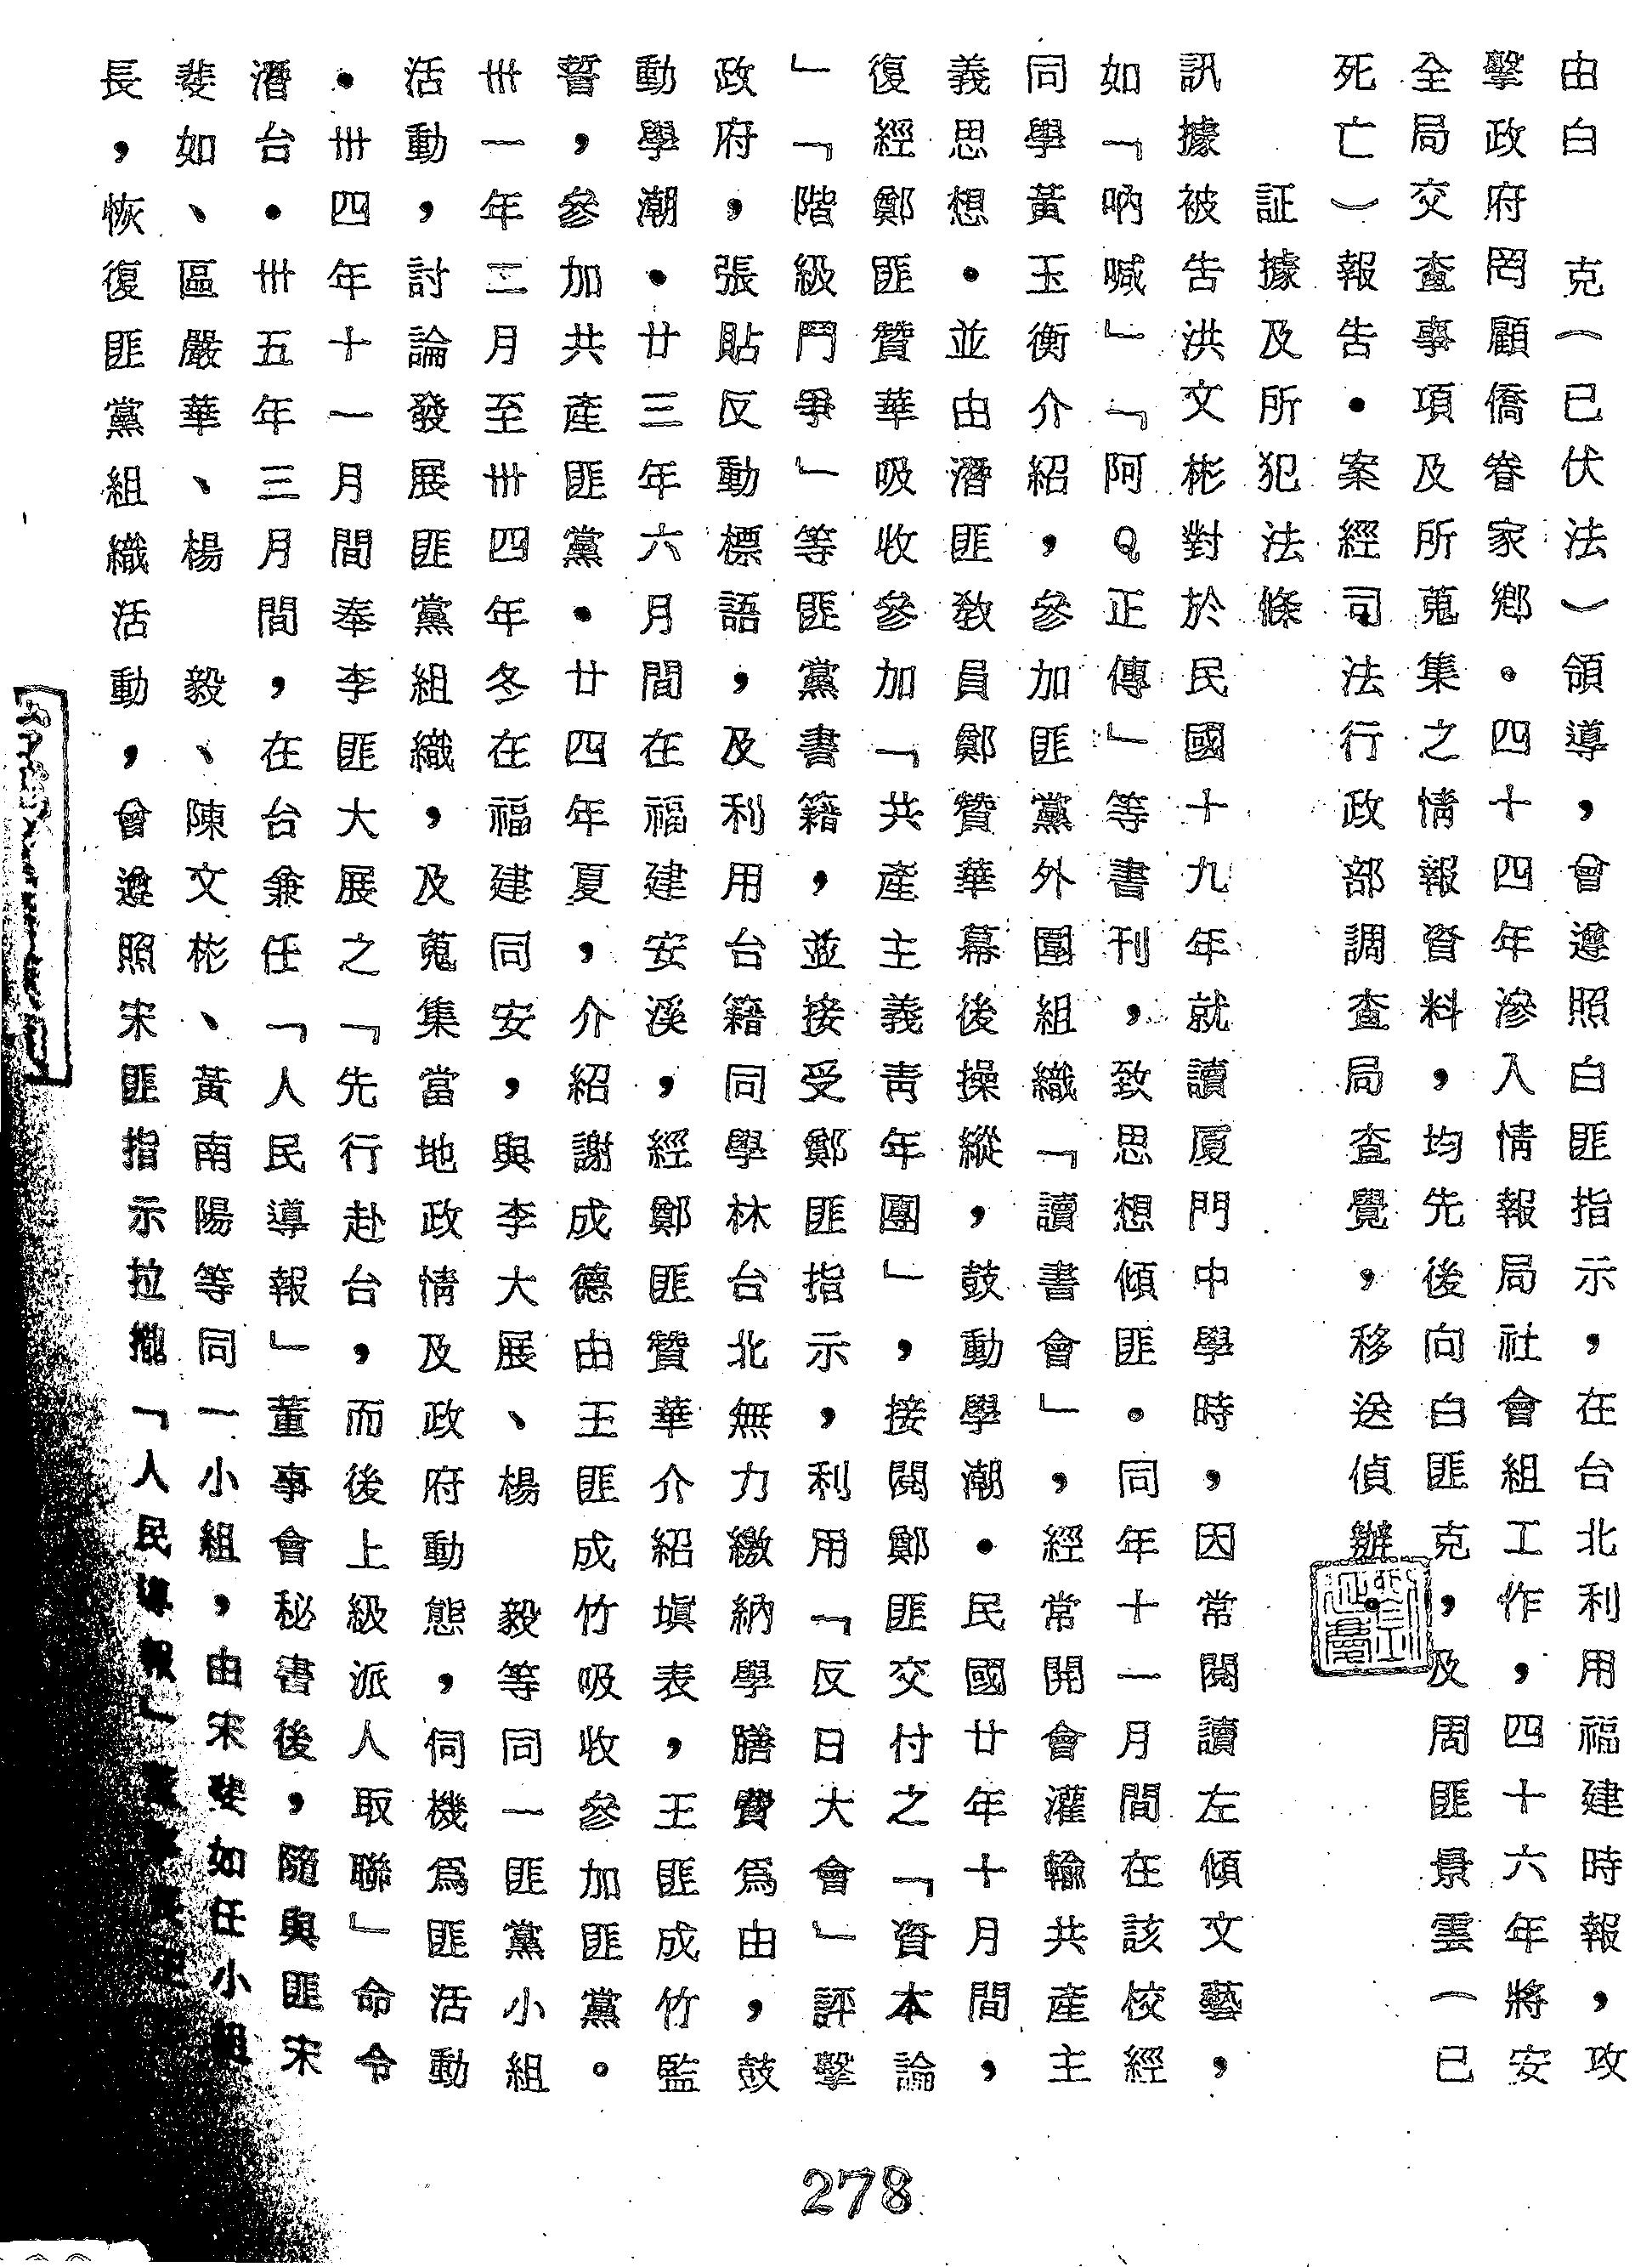 由白　克（已伏法）領導，曾遵照白匪指示，在台北利用福建時報，攻
擊政府罔顧僑眷家鄉。四十四年滲入情報局社會組工作，四十六年將安
全局交查事項及所蒐集之情報資料，均先後向白匪克，及周匪景雲（已
死亡）報告．案經司法行政部調查局，查覺，移送偵辦．
証據及所犯法條
訊據被告洪文彬對於民國十九年就讀厦門中學時，因常閱讀左傾文藝，
如「吶喊」「阿Q正傳」等書刊，致思想傾匪。同年十一月間在該校經
同學黃玉衡介紹，參加匪黨外圍組織「讀書會」，經常開會灌輸共產主
義思想．並由潛匪教員鄭贊華幕後操縱，鼓動學潮．民國廿年十月間，
復經鄭匪贊華吸收參加「共產主義青年團」，接閱鄭匪交付之「資本論
」「階級鬥爭」等匪黨書籍，並接受鄭匪指示，利用「反日大會」評擊
政府，張貼反動標語，及利用台籍同學林台北無力繳納學膳費爲由，鼓
動學潮．廿三年六月間在福建安溪，經鄭匪贊華介紹塡表，王匪成竹監
誓，參加共產匪黨．廿四年夏，介紹謝成德由王匪成竹吸收參加匪黨。
卅一年二月至卅四年冬在福建同安，與李大展、楊　毅等同一匪黨小組
活動，討論發展匪黨組織，及蒐集當地政情及政府動態，伺機爲匪活動
．卅四年十一月間奉李匪大展之「先行赴台，而後上級派人取聯」命令
潛台．卅五年三月間，在台兼任「人民導報」董事會秘書後，隨與匪宋
斐如、區嚴華、楊　毅、陳文彬、黃南陽等同一小組，由宋斐如任小組
長，恢復匪黨組織活動，曾遵照宋匪指示拉攏「人民導報」
278